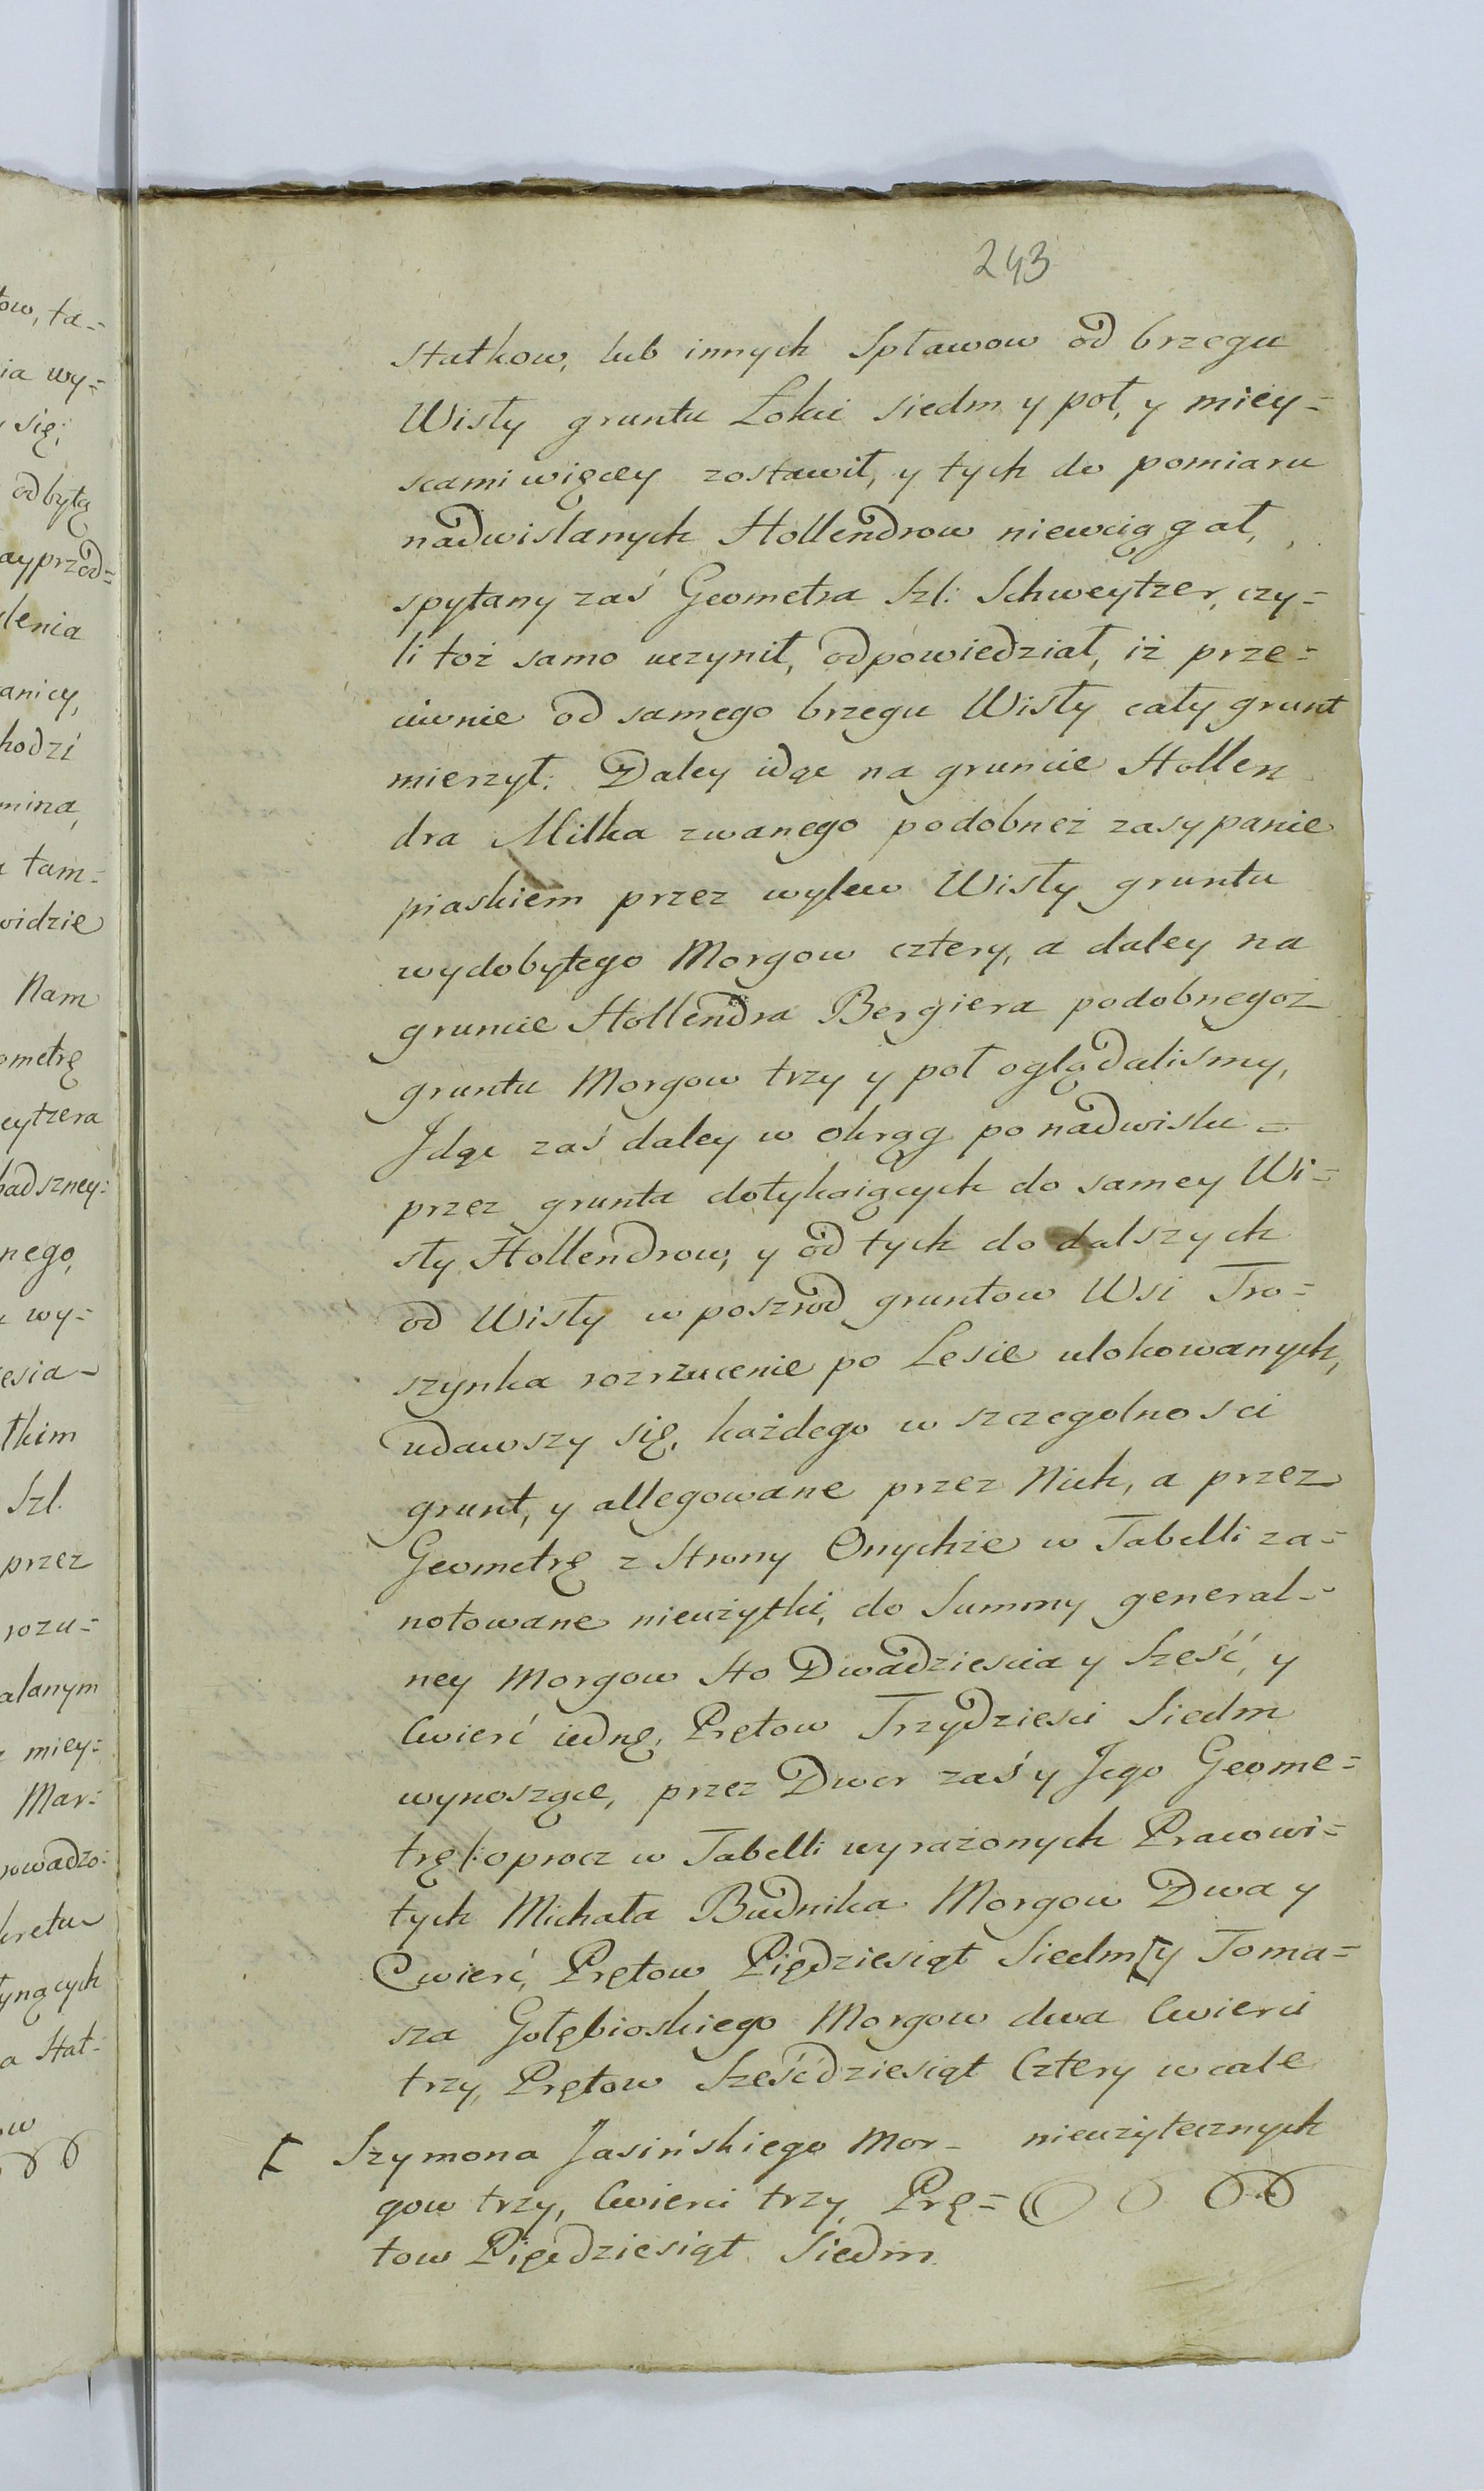 243
statkow, lub innych Spławow od brzegu
Wisły gruntu Łokci siedm y poł, y miey=
scami więcey zostawił, y tych do pomiaru
nadwislanych Hollendrow niewciąggał,
spytany zaś Geometra Szl: Schweytzer, czy=
li toż samo uczynił, odpowiedział, iż prze=
ciwnie od samego brzegu Wisły cały grunt
mierzył: Daley idąc na gruncie Hollen
dra Milka zwanego podobneż zasypanie
piaskiem przez wylew Wisły gruntu
wydobytego Morgow cztery, a daley na
gruncie Hollendra Bergiera podobnegoż
gruntu Morgow trzy y poł oglądalismy,
Jdąc zaś daley w okrąg po nadwislu =
przez grunta dotykaiących do samey Wi=
sły Hollendrow, y od tych do dalszych
od Wisły w poszrod gruntow Wsi Tro=
szynka rozrzucenie po Lesie ulokowanych,
udawszy się, każdego w szczegolnosci
grunt, y allegowane przez Nich, a przez
Geometrę z Strony Onychże w Tabelli za=
notowane nieużytki, do Summy general=
ney Morgow Sto Dwadziescia y Sześć, y
Cwierć iednę, Prętow Trzydziesci Siedm
wynoszące, przez Dwor zaś y Jego Geome=
trę /: oprocz w Tabelli wyrażonych Pracowi=
tych Michała Budnika Morgow Dwa y
Cwierć, Prętow Pięćdziesiąt Siedm [ y Toma=
sza Gołębioskiego Morgow dwa Cwierci
trzy, Prętow Sześćdziesiąt Cztery wcale
nieużytecznych
[ Szymona Jasińskiego Mor=
gow trzy, Cwierci trzy, Prę=
tow Pięćdziesiąt Siedm
ow, ta=
ia wy=
się;
odbytą
ayprzod=
lenia
anicy,
hodzi
mina,
tam=
widzie
Nam
ometrę
eytzera
nego,
wy=
esia=
tkim
Szl.
przez
rozu=
alanym
miey=
Mar=
owadzo=
kretu
ynących
a Stat=
ow